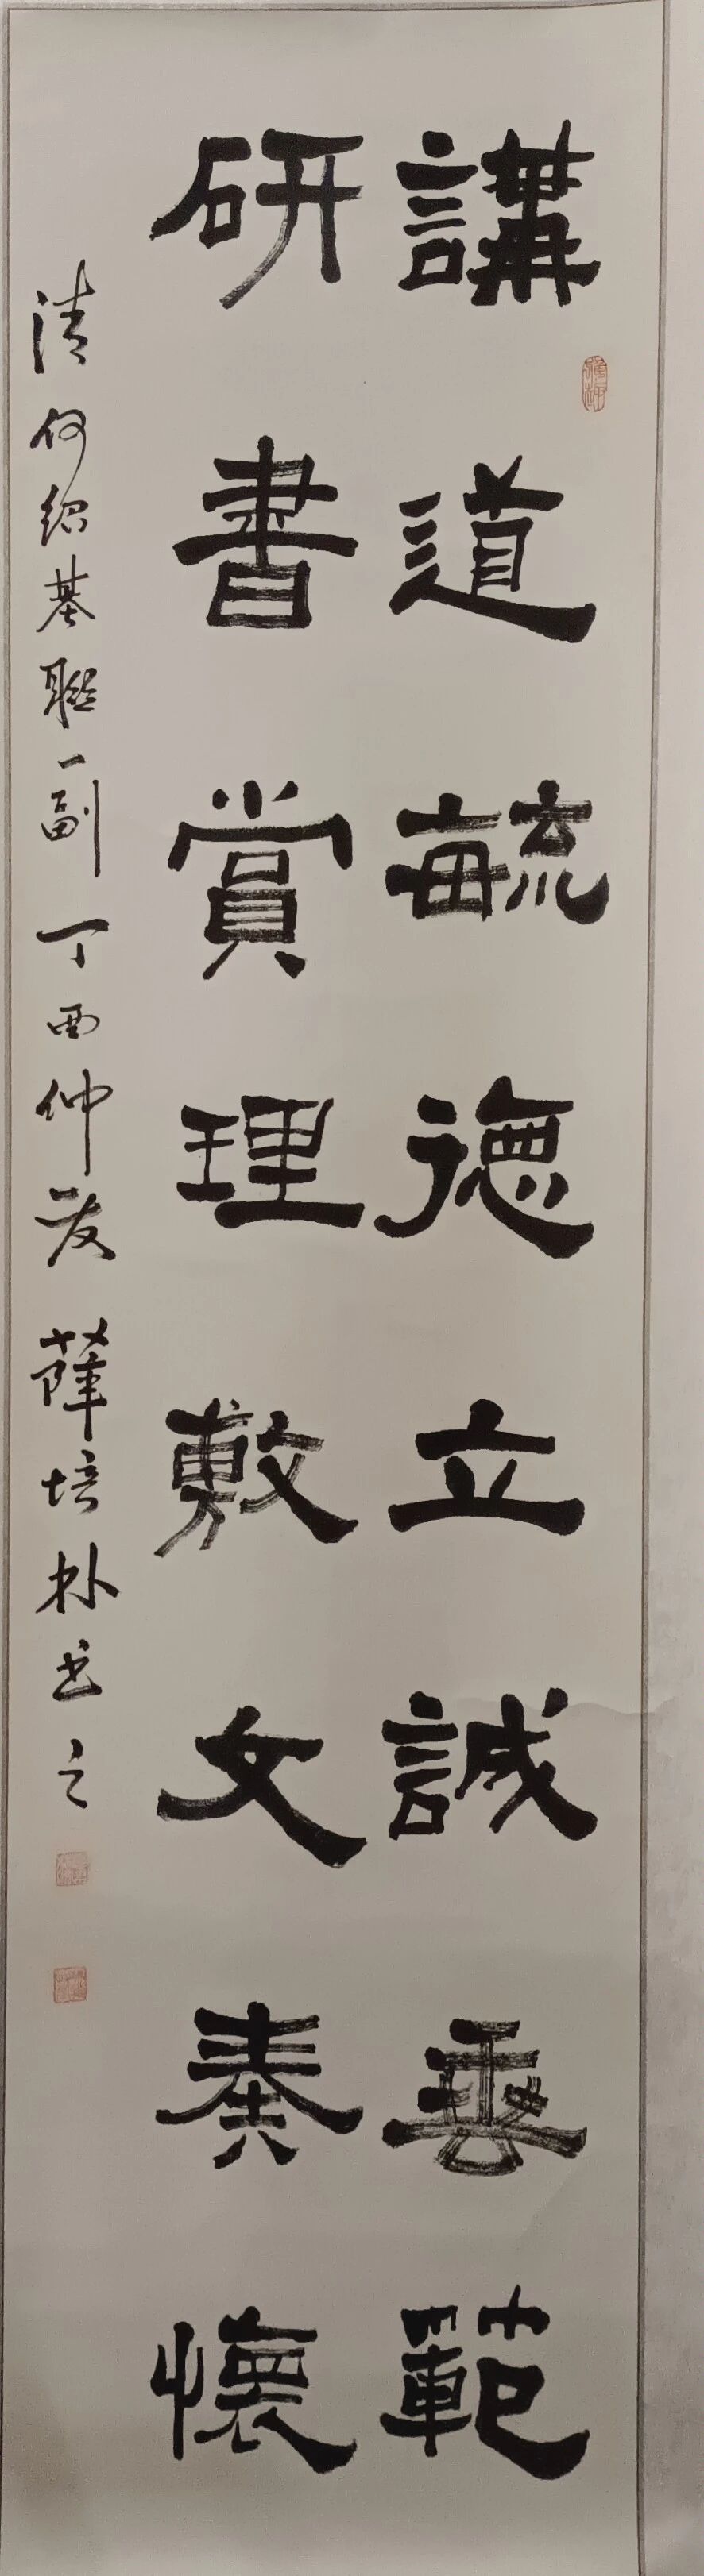 講道毓德立誠垂範
研書賞理敷文奏懷
清何紹基聯一副丁酉仲夏薛培朴书之